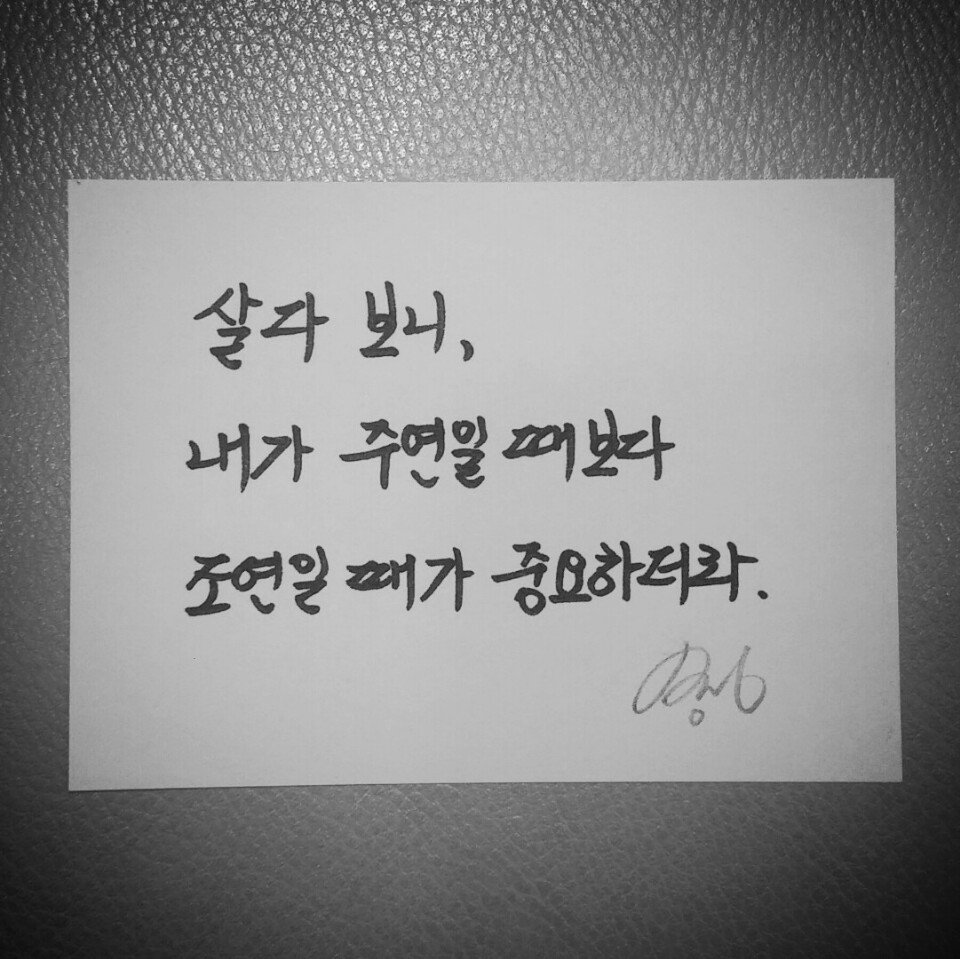 살다 보니,
내가 주연일 때보다
조연일 때가 중요하더라.